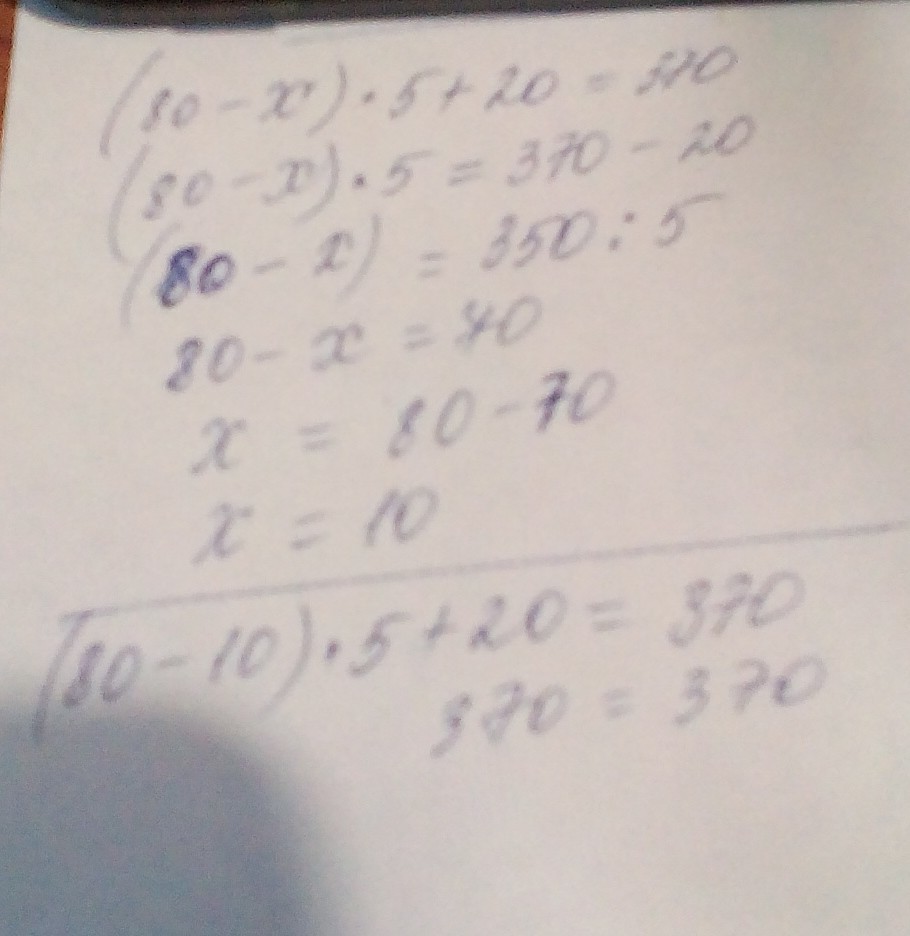 (80 - x) · 5 + 20 = 370
(80 - x) · 5 = 370 - 20
(80 - x) = 350 : 5
80 - x = 70
x = 80 - 70
x = 10
(80 - 10) · 5 + 20 = 370
370 = 370